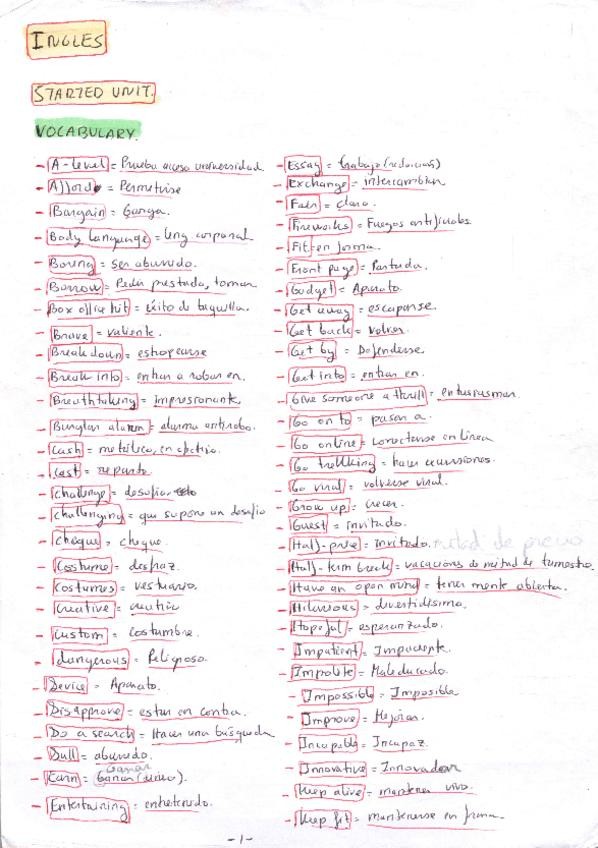 INGLES
STARTED UNIT.
VOCABULARY.
- A-level = Prueba acceso universidad
- Afford = Permitirse
- Bargain = Ganga.
- Body language = leng corporal
- Boring = ser aburrido.
- Borrow = Pedir prestado, tomar
- Box office hit = éxito de taquilla.
- Brave = valiente.
- Break down = estropearse
- Break into = entrar a robar en.
- Breathtaking = impresionante
- Burglar alarm = alarma antirrobo.
- Cash = metálico, en efectivo.
- Cast = reparto.
- Challenge = desafio
- Challenging = que supone un desafio
- Cheque = cheque.
- Costume = disfraz.
- Costumes = vestuario.
- Creative = creativo
- Custom = costumbre.
- dangerous = Peligroso.
- Device = Aparato.
- Disapprove = estar en contra.
- Do a search = Hacer una búsqueda
- Dull = aburrido.
- Earn = Ganar (dinero).
- Entertaining = entretenido.
- Essay = trabajo (redaccion)
- Exchange = intercambiar
- Fair = claro.
- Fireworks = Fuegos artificiales
- Fit = en forma.
- Front page = Portada.
- Gadget = Aparato.
- Get away = escaparse.
- Get back = volver.
- Get by = Defenderse.
- Get into = entrar en.
- Give someone a thrill = entusiasmar.
- Go on to = pasar a.
- Go online = conectarse en linea
- Go trekking = hacer excursiones.
- Go viral = volverse viral.
- Grow up = crecer.
- Guest = invitado.
- Half-price = invitado. mitad de precio
- Half-term break = vacaciones de mitad de trimestre.
- Have an open mind = tener mente abierta.
- Hilarious = divertidisimo.
- Hopeful = esperanzado.
- Impatient = Impaciente.
- Impolite = Maleducado.
- Impossible = Imposible
- Improve = Mejorar.
- Incapable = Incapaz.
- Innovative = Innovador
- Keep alive = mantener vivo.
- Keep fit = mantenerse en forma.
- 1 -